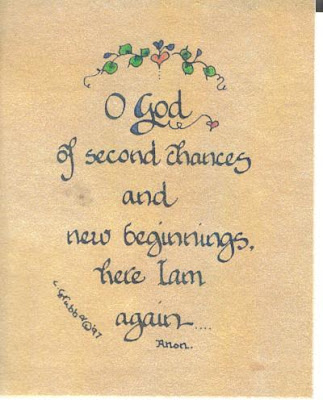 O God
of second chances
and
new beginnings,
here I am
again....
Anon.